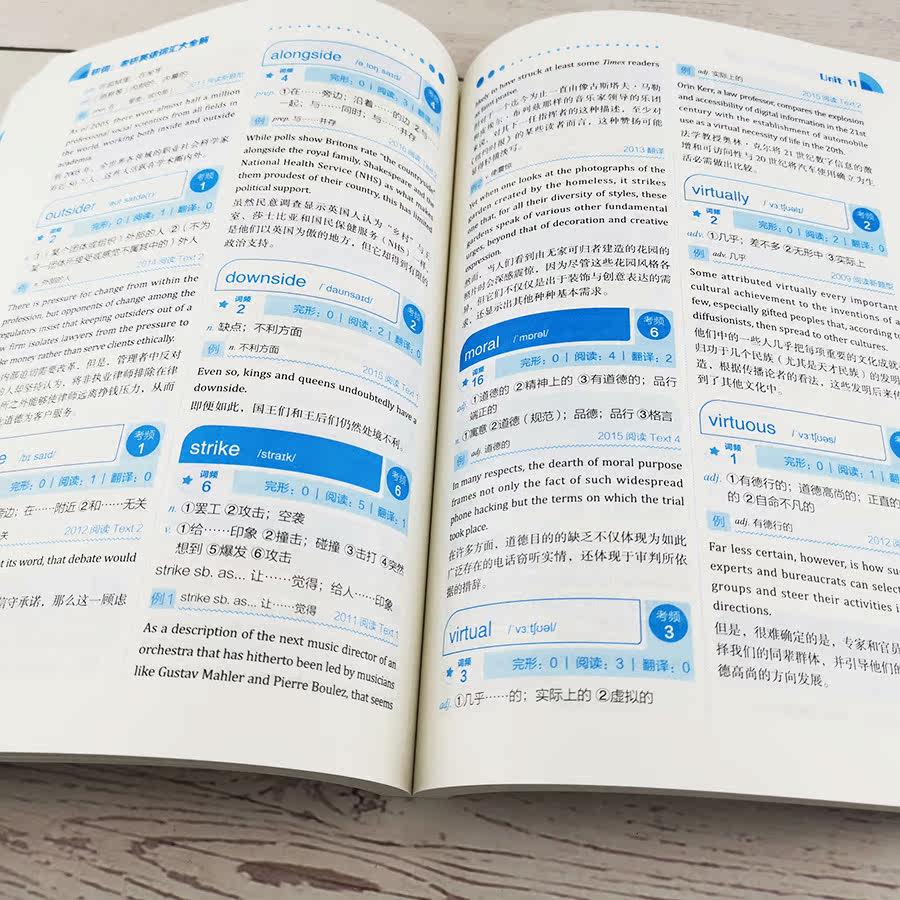 考研英语词汇大全解
As of 2005, there were almost half a million
professional social scientists from all fields in
the world, working both inside and outside
academia.
考频
1
outsider
词频
2
完形：0 | 阅读：1 | 翻译：0
n. ①（某个团体或组织）外部的人 ②（不为
某一团体所接受或感觉不属其中的）外人
2014 阅读 Text 2
例 n. 外部的人
There is pressure for change from within the
profession, but opponents of change among the
regulators insist that keeping outsiders out of a
law firm isolates lawyers from the pressure to
make money rather than serve clients ethically.
内部迫切需要改革，但是，管理者中反对
的人却坚持认为，将非执业律师排除在律
所之外能够使律师远离挣钱压力，从而
道德为客户服务。
/bɪˈsaɪd/
考频
1
完形：0 | 阅读：1 | 翻译：0
旁边；在……附近 ②和……无关
2012 阅读 Text 2
t its word, that debate would
信守承诺，那么这一顾虑
alongside
词频
4
完形：0 | 阅读：3
prep. ①在……旁边；沿着……的边 ②与……
一起；与……同时，与……并存
例 prep. 与……并存
2016 阅读
While polls show Britons rate "the countryside"
alongside the royal family, Shakespeare and the
National Health Service (NHS) as what makes
them proudest of their country, this has limited
political support.
虽然民意调查显示英国人认为"乡村"与王
室、莎士比亚和国民保健服务（NHS）一样，
是他们以英国为傲的地方，但它却得到有限的
政治支持。
downside /ˈdaʊnsaɪd/
考频
2
词频
2
完形：0 | 阅读：2 | 翻译：0
n. 缺点；不利方面
例 n. 不利方面
2015 阅读 Text 1
Even so, kings and queens undoubtedly have a
downside.
即便如此，国王们和王后们仍然处境不利。
strike /straɪk/
考频
6
词频
6
完形：0 | 阅读：5 | 翻译：1
n. ①罢工 ②攻击；空袭
v. ①给……印象 ②撞击；碰撞 ③击打 ④突然
想到 ⑤爆发 ⑥攻击
strike sb. as... 让……觉得；给人……印象
例 1 strike sb. as... 让……觉得
2011 阅读 Text 1
As a description of the next music director of an
orchestra that has hitherto been led by musicians
like Gustav Mahler and Pierre Boulez, that seems
to have struck at least some Times readers
as faint praise.
2013 翻译
Yet when one looks at the photographs of the
garden created by the homeless, it strikes
one that, for all their diversity of styles, these
gardens speak of various other fundamental
urges, beyond that of decoration and creative
expression.
然而，当人们看到由无家可归者建造的花园的
照片时会深感震惊，因为尽管这些花园风格各
异，但它们不仅仅是出于装饰与创意表达的需
求，还显示出其他种种基本需求。
moral /ˈmɒrəl/
考频
6
词频
16
完形：0 | 阅读：4 | 翻译：2
adj. ①道德的 ②精神上的 ③有道德的；品行
端正的
n. ①寓意 ②道德（规范）；品德；品行 ③格言
2015 阅读 Text 4
例 adj. 道德的
In many respects, the dearth of moral purpose
frames not only the fact of such widespread
phone hacking but the terms on which the trial
took place.
在许多方面，道德目的的缺乏不仅体现为如此
广泛存在的电话窃听实情，还体现于审判所依
据的措辞。
virtual /ˈvɜːtʃuəl/
考频
3
词频
3
完形：0 | 阅读：3 | 翻译：0
adj. ①几乎……的；实际上的 ②虚拟的
Unit 11
例 adj. 实际上的
2015 阅读 Text 2
Orin Kerr, a law professor, compares the explosion
and accessibility of digital information in the 21st
century with the establishment of automobile
use as a virtual necessity of life in the 20th.
法学教授奥林·克尔将 21 世纪数字信息的激
增和可访问性与 20 世纪将汽车使用确立为生
活必需做出比较。
virtually /ˈvɜːtʃuəli/
考频
2
词频
2
完形：0 | 阅读：2 | 翻译：0
adv. ①几乎；差不多 ②无形中 ③实际上
例 adv. 几乎
2009 阅读新题型
Some attributed virtually every important
cultural achievement to the inventions of a
few, especially gifted peoples that, according to
diffusionists, then spread to other cultures.
他们中的一些人几乎把每项重要的文化成就
归功于几个民族（尤其是天才民族）的发明
造，根据传播论者的看法，这些发明后来传
到了其他文化中。
virtuous /ˈvɜːtʃuəs/
词频
1
完形：0 | 阅读：1 | 翻译：0
adj. ①有德行的；道德高尚的；正直的
的 ②自命不凡的
例 adj. 有德行的
2012 阅
Far less certain, however, is how suc
experts and bureaucrats can select
groups and steer their activities i
directions.
但是，很难确定的是，专家和官员
择我们的同辈群体，并引导他们的
德高尚的方向发展。